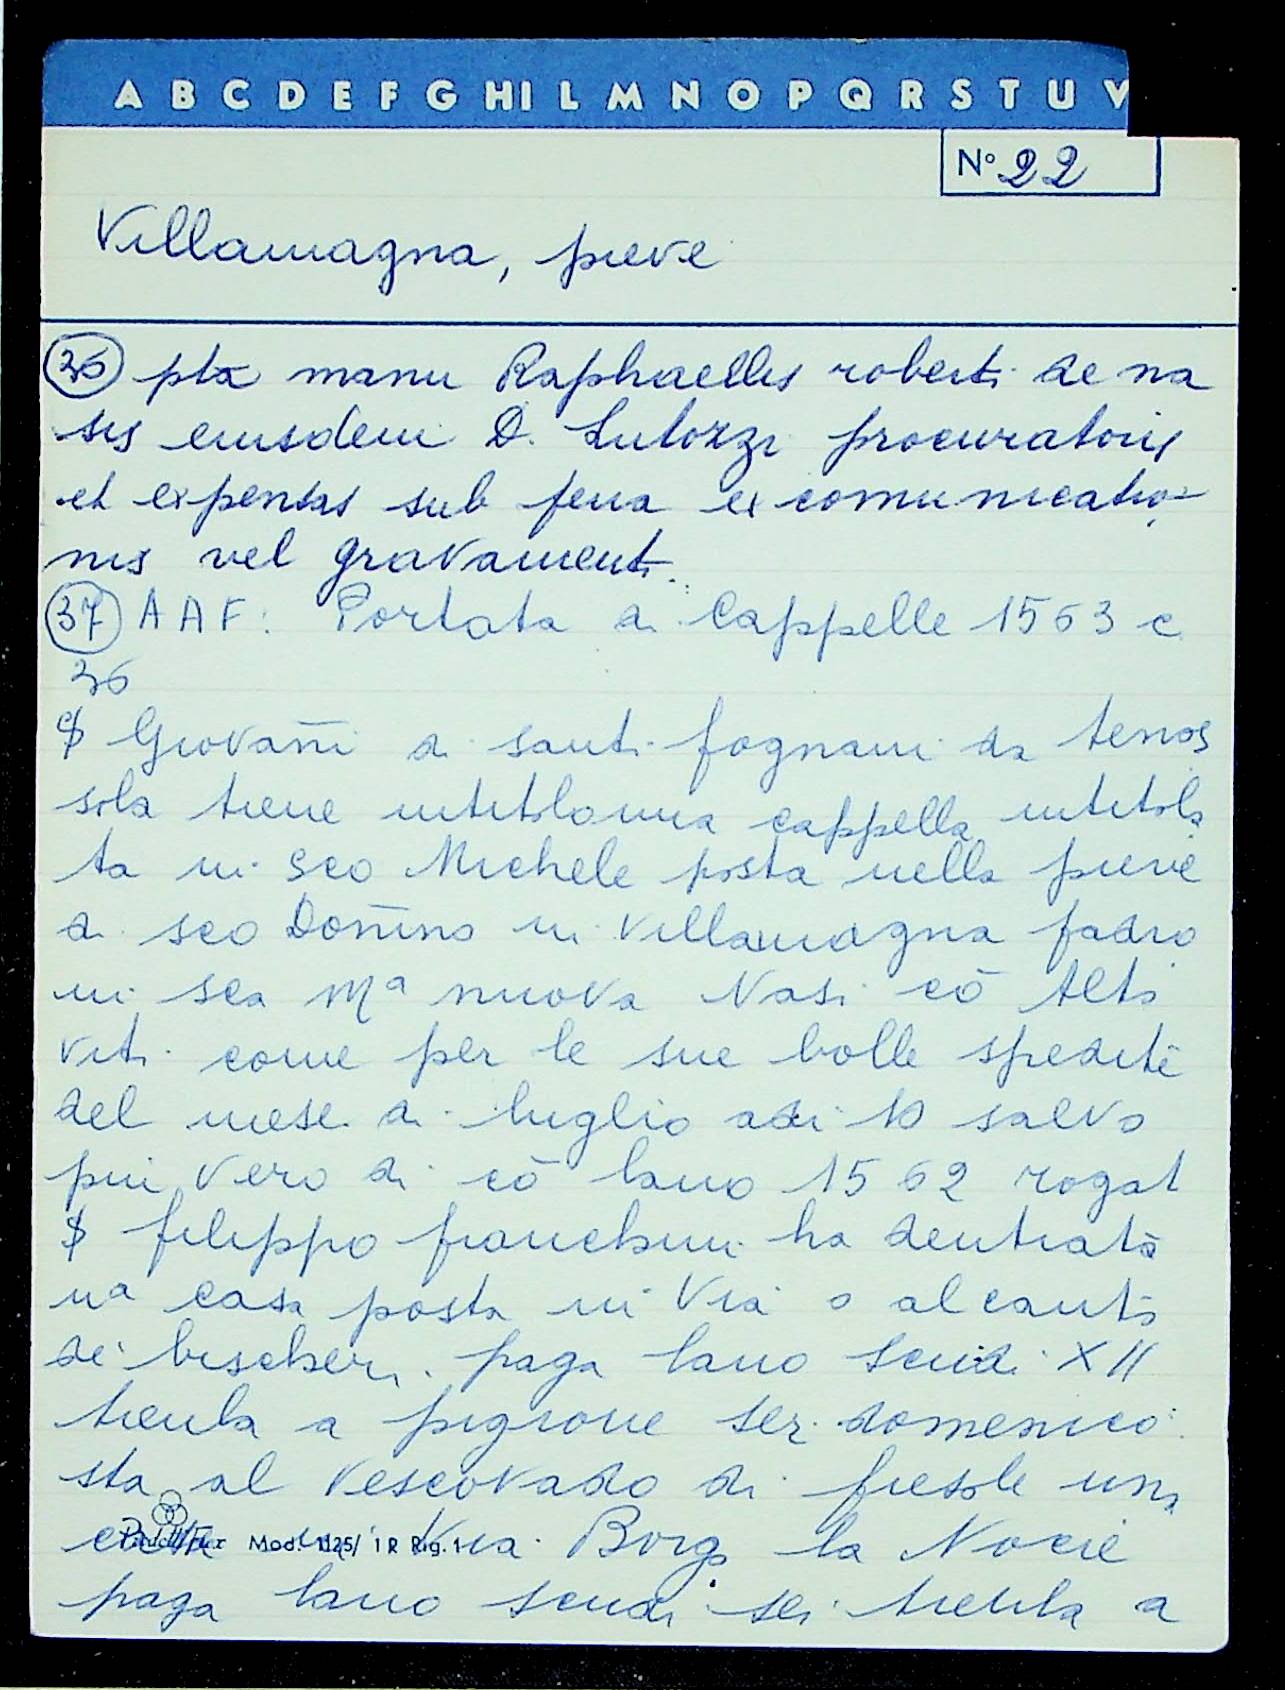 A B C D E F G HI L M N O P Q R S T U V
N° 22
Villamagna, pieve
36 pta manu Raphaellis roberti de na
sis eiusdem D. Lutozzi procuratoris
et expensas sub pena excomunicatio=
nis vel gravamenti.
37 AAF: Portata di Cappelle 1563 c
36
$ Giovañi di santi fognani da
sola tiene cappella intitola
ta in sco Michele posta nella pieve
di sco Doñino in Villamagna padro
ni sca Mª nuova Nasi cō Alto
viti come per le sue bolle spedite
del mese di luglio adi 10 salvo
più vero di cō lano 1562 rogat
$ filippo franchini ha dentrata
nª casa posta in Via o al canto
de bischeri paga lano scudi XII
tienla a pigione ser domenico
sta al vescovado di fiesole una
Mod. 1125/ 1R Rig. 1 Via Borgo la Nocie
paga lano scudi sei tienla a